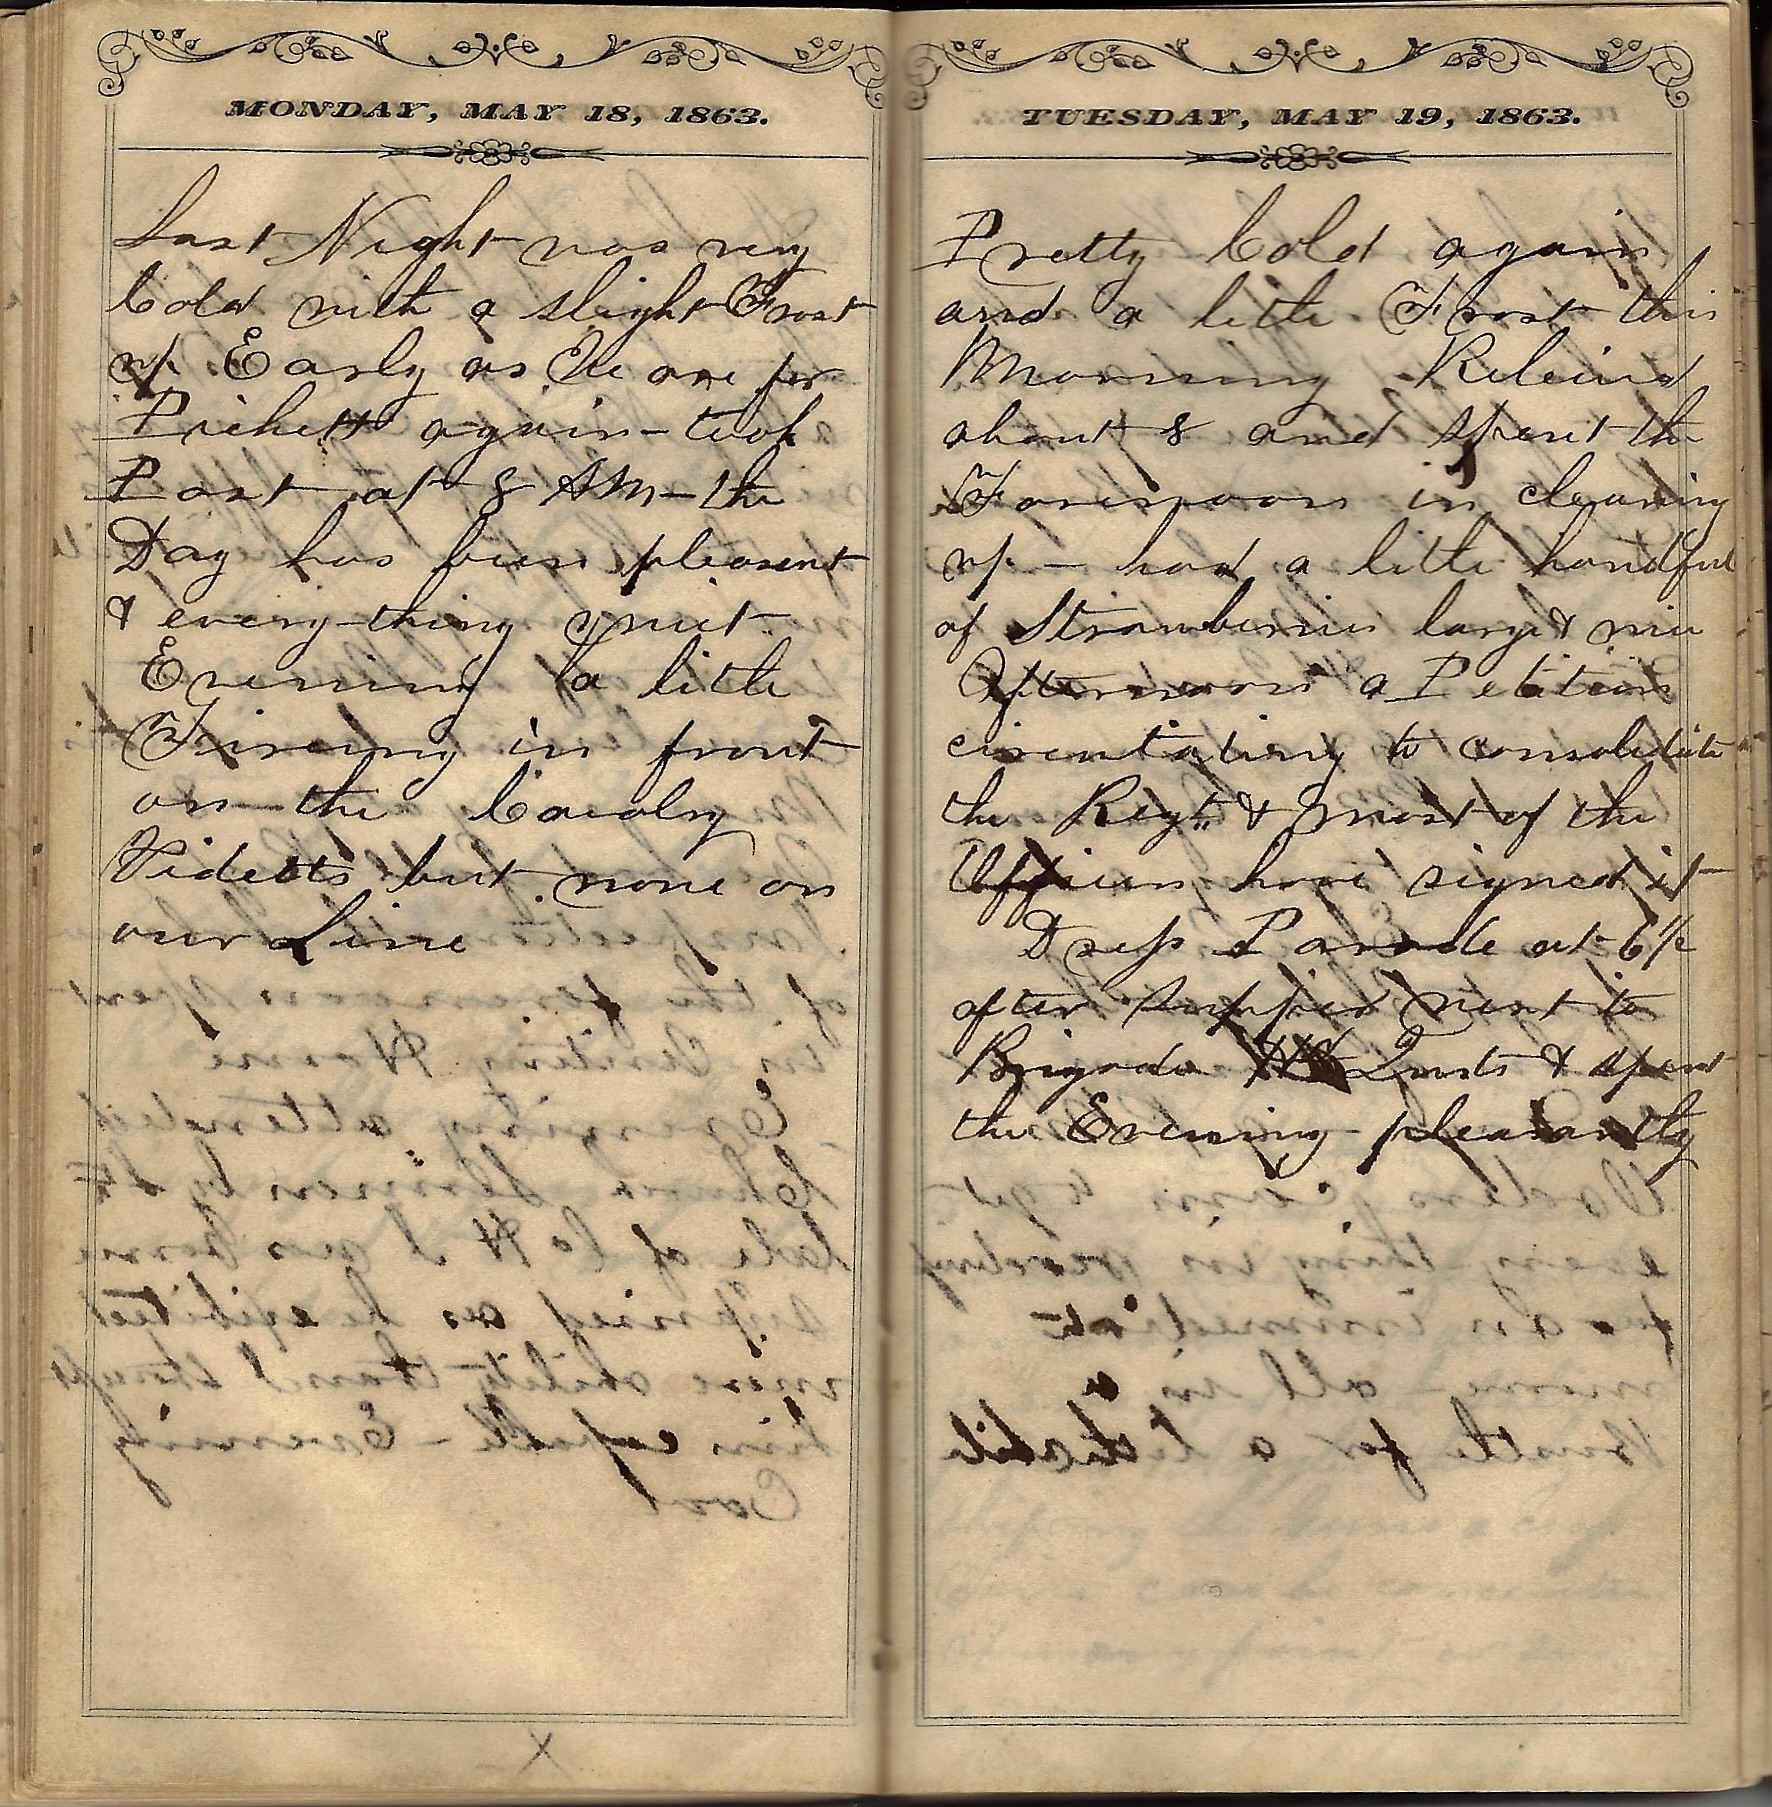 MONDAY, MAY 18, 1863.
Last Night was very
Cold with a slight Frost
up Early as We are for
Pickett again - took
Post at 8 AM - the
Day has been pleasent
& every thing quiet
Evening a little
Fireing in front
on the Cavalry
Videtts but none on
our Line
X
TUESDAY, MAY 19, 1863.
Pretty Cold again
and a little Frost this
Morning Releived
about 8 and spent the
Forenoon in cleaning
up - had a little handful
of Strawberries large & nice
Afternoon a Petition
circulating to consolidate
the Regt. & most of the
Officers have signed it
Dress Parade at 6 1/2
after supper went to
Brigade Qurts & spent
the Evening pleasantly